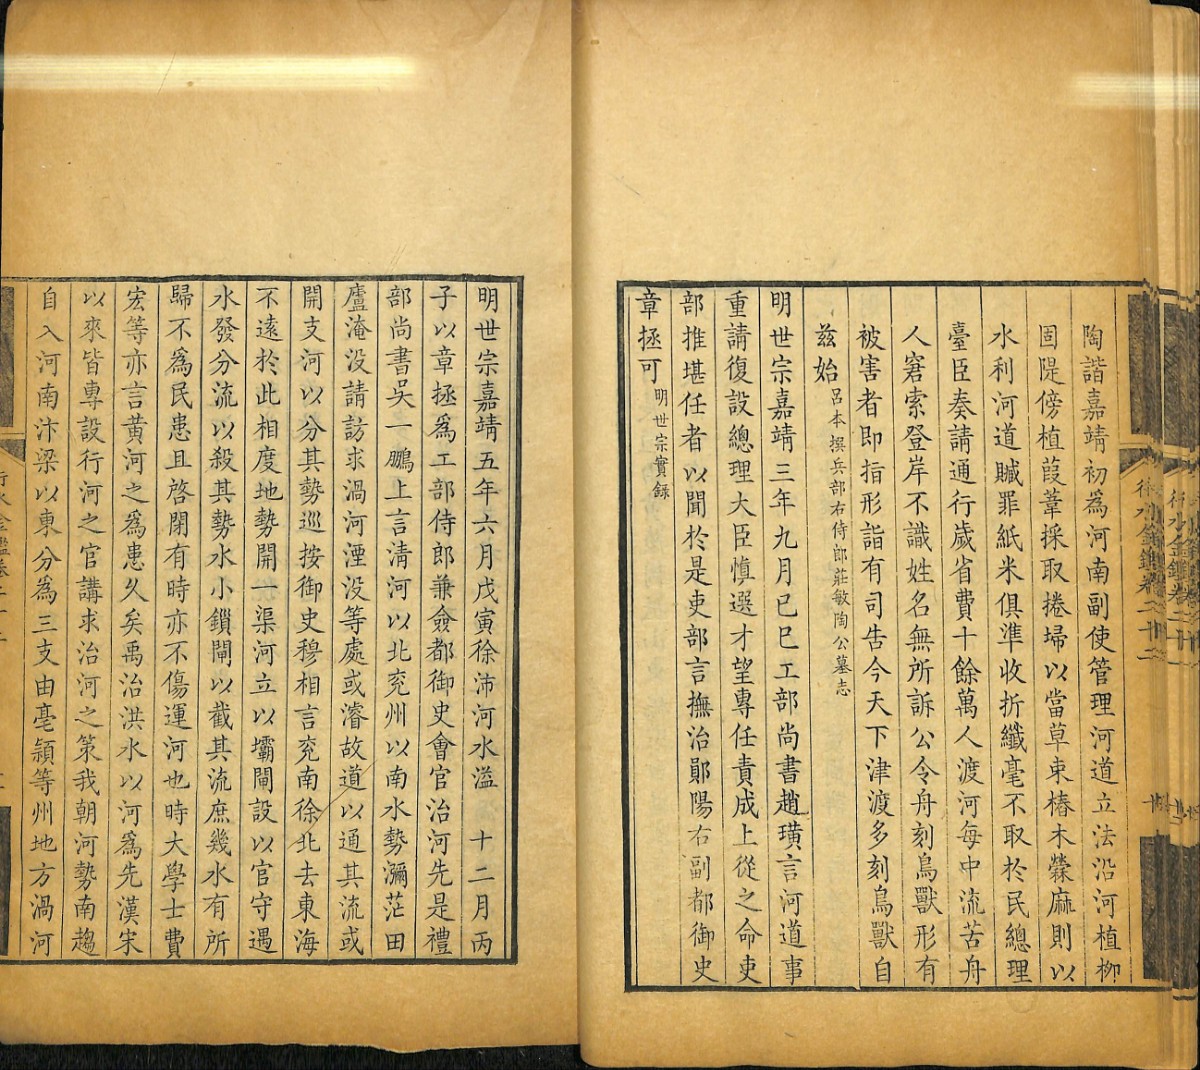 陶諧嘉靖初爲河南副使管理河道立法沿河植柳
固隄傍植葭葦採取捲埽以當草束樁木檾麻則以
水利河道贓罪紙米俱準收折纖毫不取於民總理
臺臣奏請通行歲省費十餘萬人渡河每中流苦舟
人窘索登岸不識姓名無所訴公令舟刻鳥獸形有
被害者即指形詣有司告今天下津渡多刻鳥獸自
茲始呂本撰兵部右侍郎莊敏陶公墓志
明世宗嘉靖三年九月己巳工部尚書趙璜言河道事
重請復設總理大臣慎選才望專任責成上從之命吏
部推堪任者以聞於是吏部言撫治鄖陽右副都御史
章拯可明世宗實錄
明世宗嘉靖五年六月戊寅徐沛河水溢 十二月丙
子以章拯爲工部侍郎兼僉都御史會官治河先是禮
部尚書吳一鵬上言淸河以北兖州以南水勢瀰茫田
廬淹没請訪求渦河湮没等處或濬故道以通其流或
開支河以分其勢巡按御史穆相言兖南徐北去東海
不遠於此相度地勢開一渠河立以壩閘設以官守遇
水發分流以殺其勢水小鎖閘以截其流庶幾水有所
歸不爲民患且啓閉有時亦不傷運河也時大學士費
宏等亦言黃河之爲患久矣禹治洪水以河爲先漢宋
以來皆專設行河之官講求治河之策我朝河勢南趨
自入河南汴梁以東分爲三支由亳潁等州地方渦河